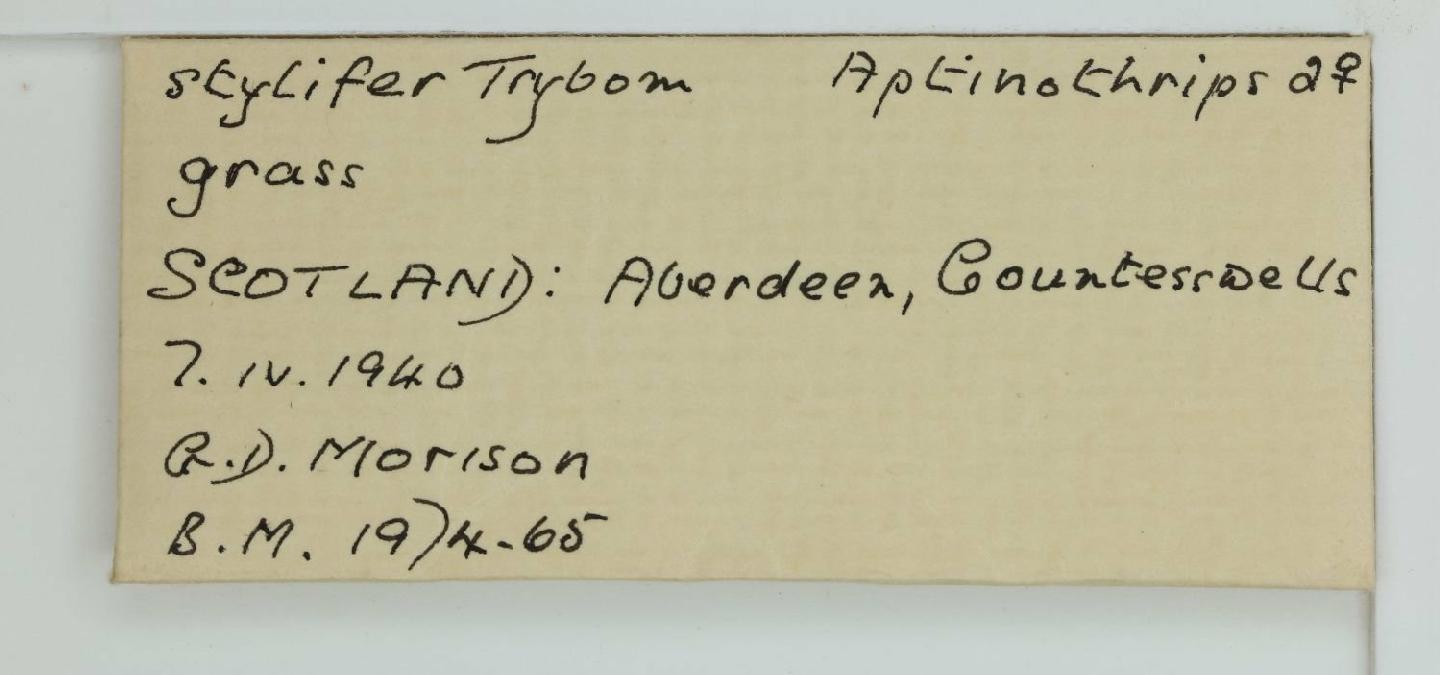 stylifer Trybom Aptinothrips 2♀
grass
SCOTLAND: Aberdeen, Countesswells
7.IV.1940
G.D. Morison
B.M. 1974-65